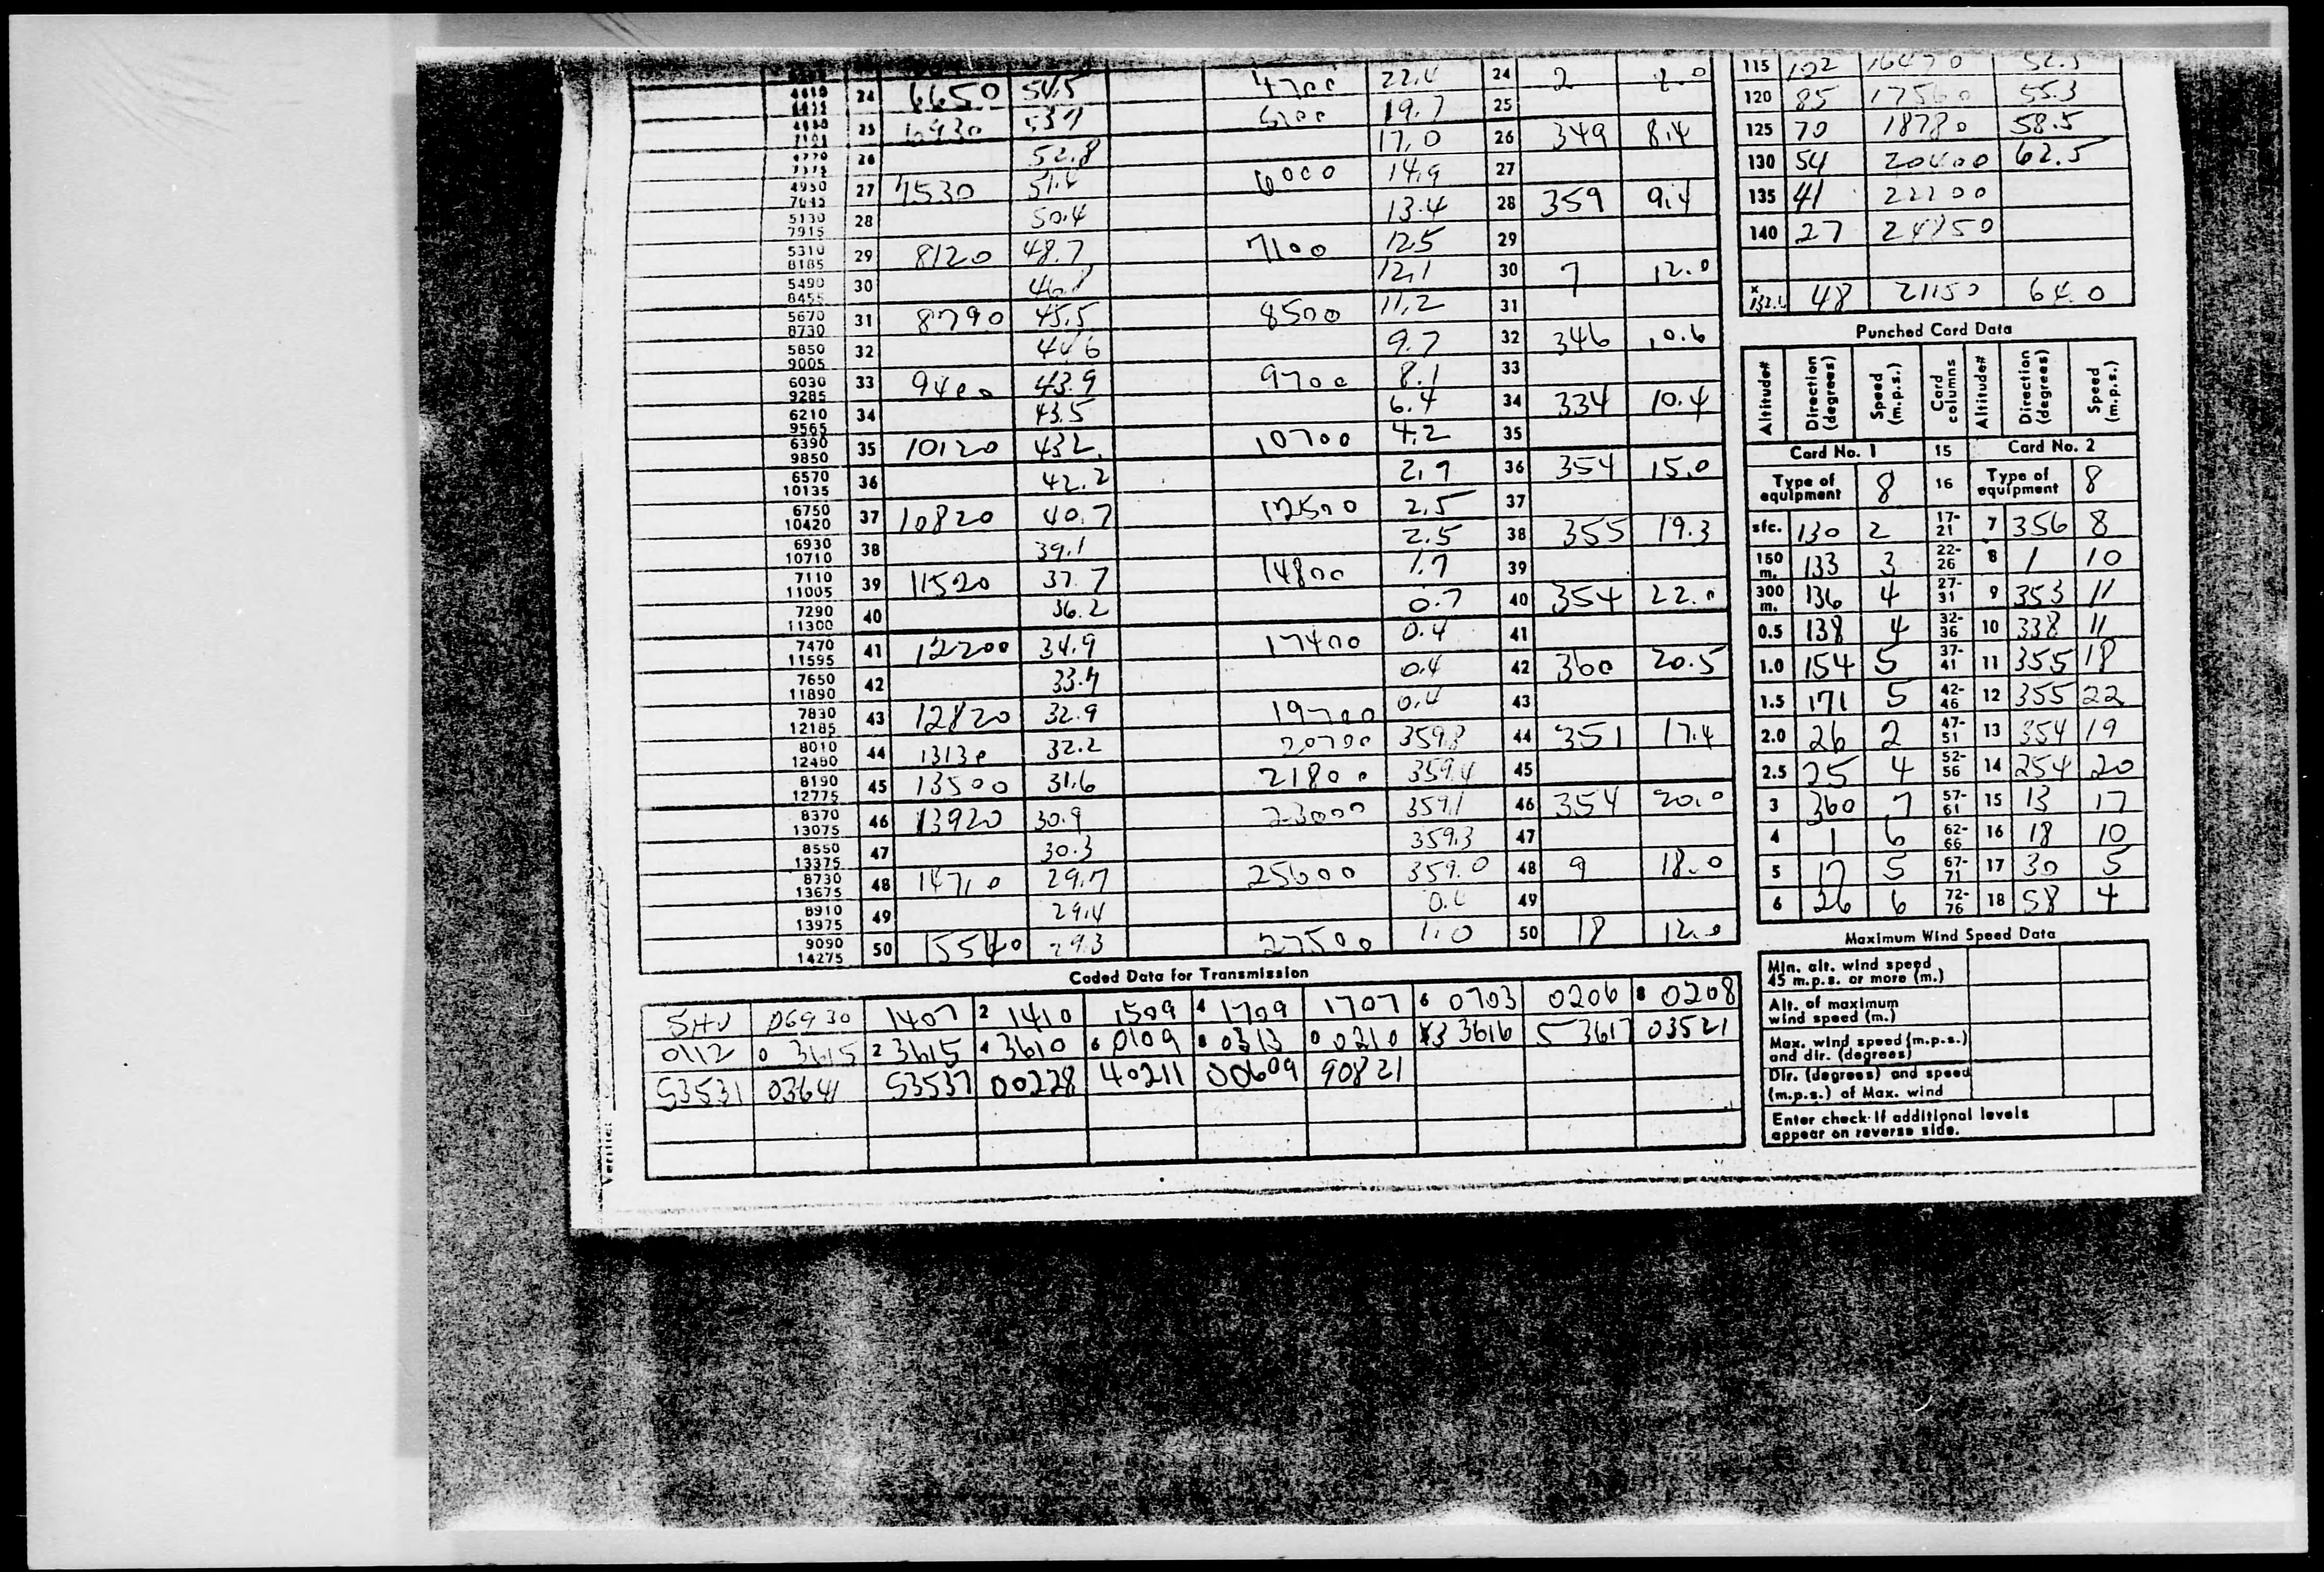 4700 22.4 24 2
24 6650 54.5
5200 19.7 25
25 6930 53.7
17.0 26 349 8.4
26 52.8
4950 7645 27 7530 51.4 6000 14.9 27
5130 7915 28 50.4 13.4 28 359 9.4
5310 8185 29 8120 48.7 7100 12.5 29
5490 8455 30 12.1 30 7 12.0
5670 8730 31 8790 45.5 8500 11.2 31
5850 9005 32 44.6 9.7 32 346 10.6
6030 9285 33 9400 43.9 9700 8.1 33
6210 9565 34 43.5 6.4 34 334 10.4
6390 9850 35 10120 43.2 10700 4.2 35
6570 10135 36 42.2 2.9 36 354 15.0
6750 10420 37 10820 40.7 12500 2.5 37
6930 10710 38 39.1 2.5 38 355 19.3
7110 11005 39 11520 37.7 14800 1.7 39
7290 11300 40 36.2 0.7 40 354 22.0
7470 11595 41 12200 34.9 17400 0.4 41
7650 11890 42 33.7 0.4 42 360 20.5
7830 12185 43 12820 32.9 19700 0.4 43
8010 12480 44 13130 32.2 20700 359.8 44 351 17.4
8190 12775 45 13500 31.6 21800 359.4 45
8370 13075 46 13920 30.9 23000 359.1 46 354 20.0
8550 13375 47 30.3 359.3 47
8730 13675 48 14710 29.7 25600 359.0 48 9 18.0
8910 13975 49 29.4 49
9090 14275 50 15540 29.3 27500 1.0 50 18 12.0
Coded Data for Transmission
06930 1407 2 1410 1509 4 1709 1707 6 0703 0206 8 0208
0112 0 3615 2 3615 4 3610 6 0109 8 0313 0 0210 3 3616 5 3617 03521
53531 03641 53537 00228 40211 00609 90821
115 102 16470 52.5
120 85 17560 55.3
125 70 18780 58.5
130 54 20400 62.5
135 41 22200
140 27 24850
x 132.1 48 21150 64.0
Punched Card Data
Altitude# Direction (degrees) Speed (m.p.s.) Card columns Altitude# Direction (degrees) Speed (m.p.s.)
Card No. 1 15 Card No. 2
Type of equipment 8 16 Type of equipment 8
sfc. 130 2 17-21 7 356 8
150 m. 133 3 22-26 8 1 10
300 m. 136 4 27-31 9 353 11
0.5 138 4 32-36 10 338 11
1.0 154 5 37-41 11 355 18
1.5 171 5 42-46 12 355 22
2.0 26 2 47-51 13 354 19
2.5 25 4 52-56 14 254 20
3 360 7 57-61 15 13 17
4 1 6 62-66 16 18 10
5 17 5 67-71 17 30 5
6 26 6 72-76 18 58 4
Maximum Wind Speed Data
Min. alt. wind speed
45 m.p.s. or more (m.)
Alt. of maximum
wind speed (m.)
Max. wind speed (m.p.s.)
and dir. (degrees)
Dir. (degrees) and speed
(m.p.s.) of Max. wind
Enter check if additional levels
appear on reverse side.